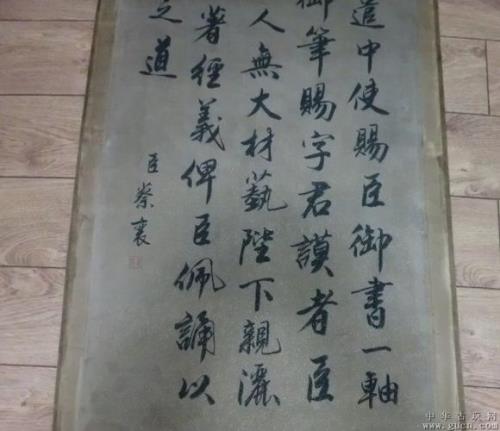 遣中使賜臣御書一軸
御筆賜字君謨者臣
人無大材藝陛下親灑
著經義俾臣佩誦以
之道
臣蔡襄
中华古玩网
www.gucn.com